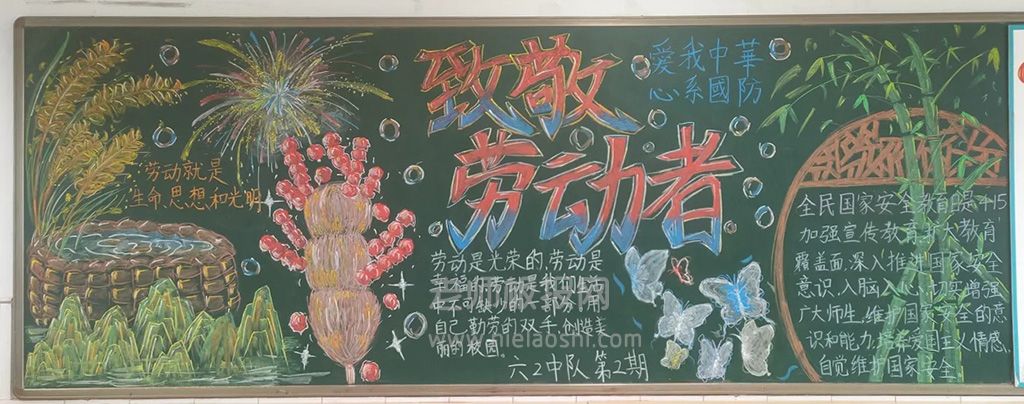 致敬
劳动者
爱我中華
心系國防
劳动就是
生命.思想和光明
劳动是光荣的,劳动是
幸福的,劳动是我们生活
中不可缺少的一部分,用
自己勤劳的双手,创造美
丽的校园。
六2中队第2期
全民国家安全教育日是4.15
加强宣传教育,扩大教育
覆盖面,深入推进国家安全
意识,入脑入心,切实增强
广大师生,维护国家安全的意
识和能力,培养爱国主义情感,
自觉维护国家安全